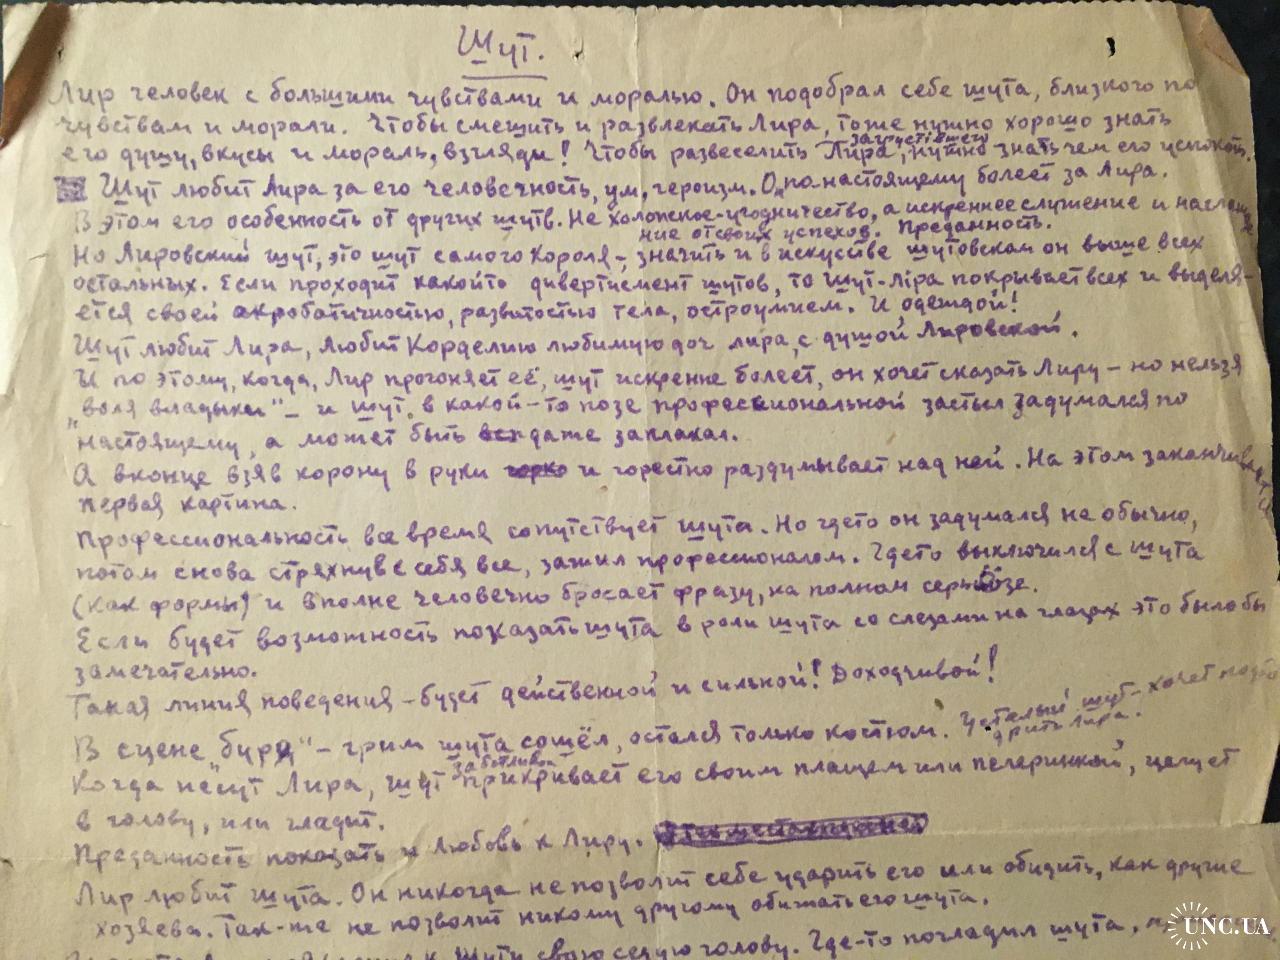 Шут.
Лир человек с большими чувствами и моралью. Он подобрал себе шута, близкого по
чувствам и морали. Чтобы смешить и развлекать Лира, тоже нужно хорошо знать
загрустившего
его душу, вкусы и мораль, взгляды! Чтобы развеселить Лира, нужно знать чем его успокоить.
Шут любит Лира за его человечность, ум, героизм. Он по настоящему болеет за Лира.
В этом его особенность от других шутв. Не холопское-угодничество, а искреннее служение и наслажде
ние от своих успехов. Преданность.
Но Лировский шут, это шут самого Короля-, значить и в искусстве шутовском он выше всех
остальных. Если проходит какойто дивертисмент шутов, то шут-Ліра покрывает всех и выделя-
ется своей акробатичностью, развитостью тела, остроумием. И одеждой!
Шут любит Лира, любит Корделию любимую доч лира, с душой Лировской.
И по этому, когда, Лир прогоняет её, шут искренне болеет, он хочет сказать Лиру - но нельзя
"воля владыки" - и шут, в какой-то позе профессиональной застыл задумался по
настоящему, а может быть даже заплакал.
А вконце взяв корону в руки и горестно раздумывает над ней. На этом заканчивается
первая картина.
Профессиональность все время сопутствует шута. Но гдето он задумался не обычно,
потом снова стряхнув с себя все, зажил профессионалом. Гдето выключился с шута
(как формы) и вполне человечно бросает фразу, на полном серьёзе.
Если будет возможность показать шута в роли шута со слезами на глазах это было бы
замечательно.
Такая линия поведения - будет действенной и сильной! Доходчивой!
В сцене "буря" - грим шута сошёл, остался только костюм. Усталый шут - хочет
Лира.
заботливо
Когда несут Лира, шут прикривает его своим плащем или пелеринкой, целует
в голову, или гладит.
Преданность показать и любовь к Лиру.
Лир любит шута. Он никогда не позволит себе ударить его или обидить, как другие
хозяева. Так-же не позволит никому другому обижать его шута.
к шута свою седую голову. Где-то погладил шута,
UNC.UA